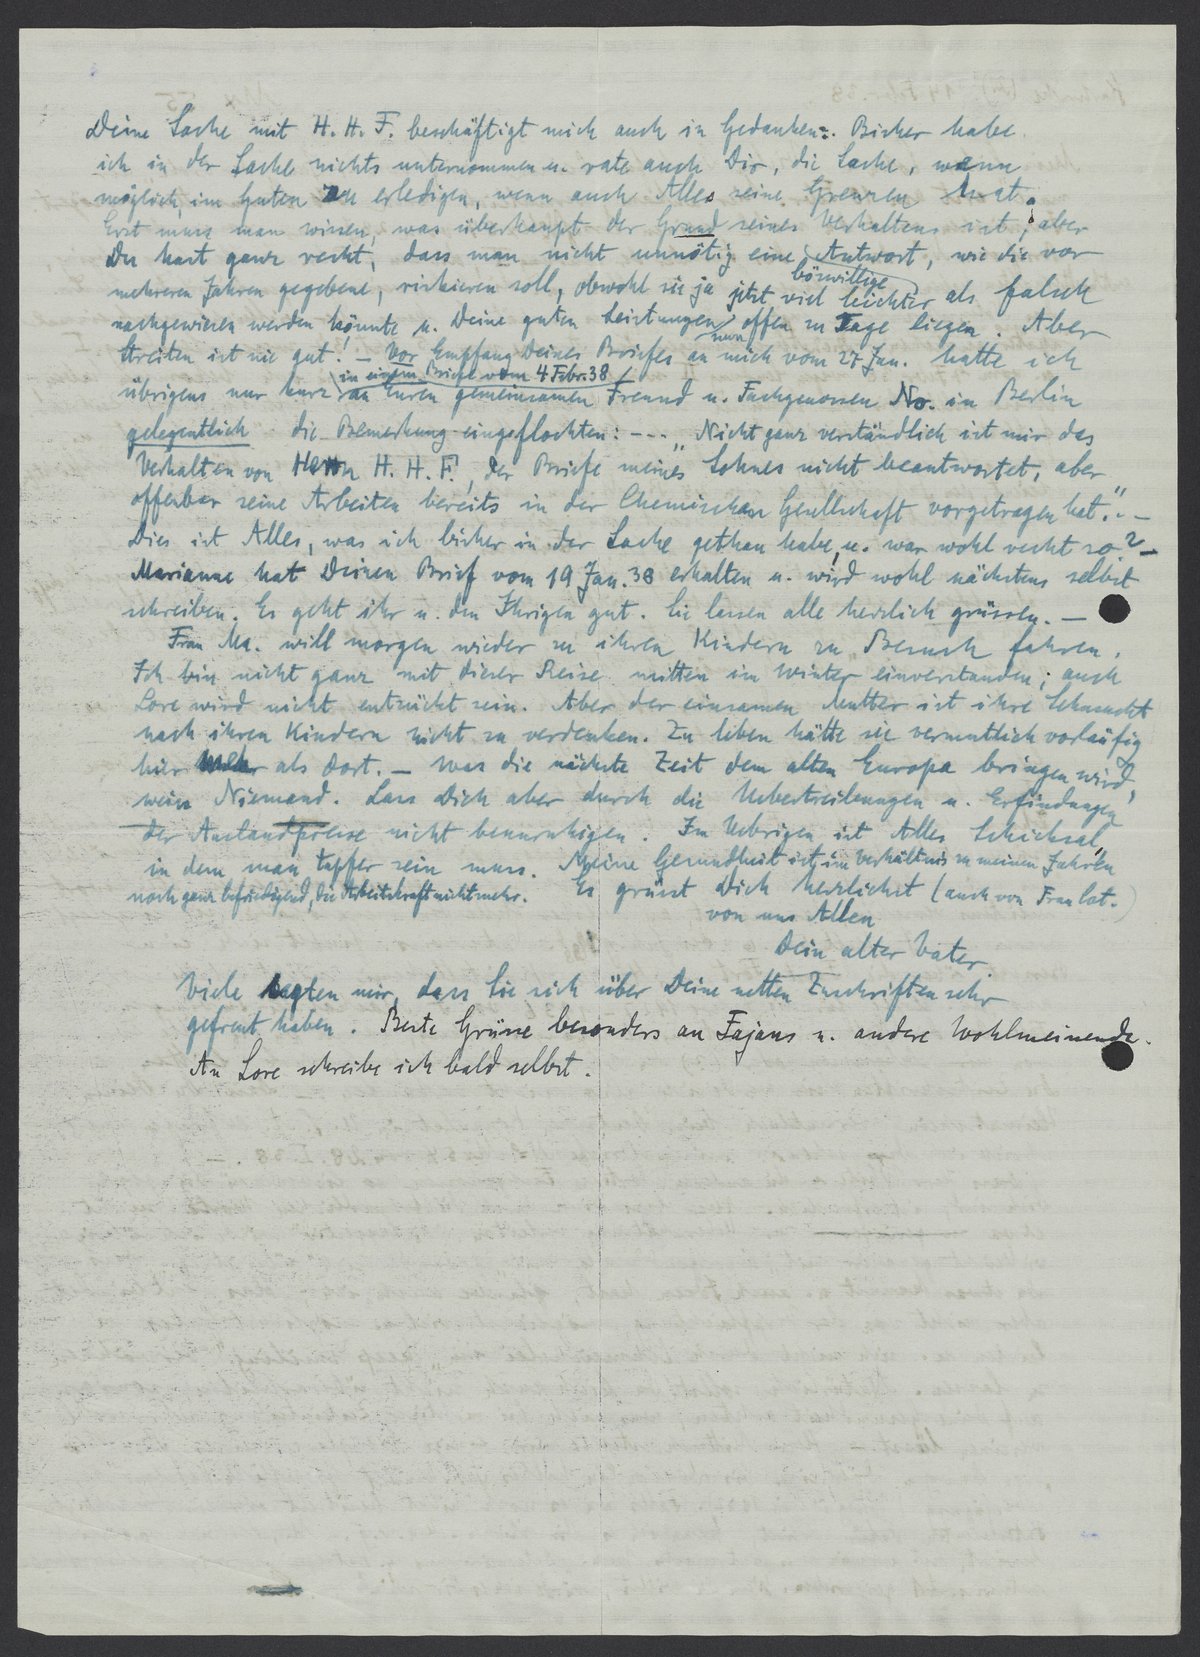 Deine Sache mit H. H. F. beschäftigt mich auch in Gedanken. Bisher habe
ich in der Sache nichts unternommen u. rate auch Dir, die Sache, wenn
möglich, im Guten zu erledigen, wenn auch Alles seine Grenzen hat.
Erst muss man wissen, was überhaupt der Grund seines Verhaltens ist; aber
Du hast ganz recht, dass man nicht unnötig eine Antwort, wie die vor
böswillige
mehreren Jahren gegebene, riskieren soll, obwohl sie ja jetzt viel leichter als falsch
nachgewiesen werden könnte u. Deine guten Leistungen offen zu Tage liegen. Aber
nun
Streiten ist nie gut! – Vor Empfang Deines Briefes an mich vom 27 Jan. hatte ich
in einem Briefe vom 4 Febr. 38
übrigens nur kurz an Euren gemeinsamen Freund u. Fachgenossen No. in Berlin
gelegentlich die Bemerkung eingeflochten: --- „Nicht ganz verständlich ist mir das
Verhalten von Herrn H. H. F., der Briefe meines Sohnes nicht beantwortet, aber
offenbar seine Arbeiten bereits in der Chemischen Gesellschaft vorgetragen hat." –
Dies ist Alles, was ich bisher in der Sache gethan habe, u. war wohl recht so? –
Marianne hat Deinen Brief vom 19 Jan. 38 erhalten u. wird wohl nächstens selbst
schreiben. Es geht ihr u. den Ihrigen gut. Sie lassen alle herzlich grüssen. –
Frau Ma. will morgen wieder zu ihren Kindern zu Besuch fahren.
Ich bin nicht ganz mit dieser Reise mitten im Winter einverstanden; auch
Lore wird nicht entzückt sein. Aber der einsamen Mutter ist ihre Sehnsucht
nach ihren Kindern nicht zu verdenken. Zu leben hätte sie vermutlich vorläufig
hier mehr als dort. – Was die nächste Zeit dem alten Europa bringen wird,
weiss Niemand. Lass Dich aber durch die Uebertreibungen u. Erfindungen
der Auslandpresse nicht beunruhigen. Im Uebrigen ist Alles Schicksal,
in dem man tapfer sein muss. Meine Gesundheit ist im Verhältnis zu meinen Jahren
noch ganz befriedigend, die Arbeitskraft nicht mehr. Es grüsst Dich herzlichst (auch von Frau Lot.)
von uns Allen
Dein alter Vater.
Viele sagten mir, dass Sie sich über Deine netten Zuschriften sehr
gefreut haben. Beste Grüsse besonders an Fajans u. andere Wohlmeinende.
An Lore schreibe ich bald selbst.